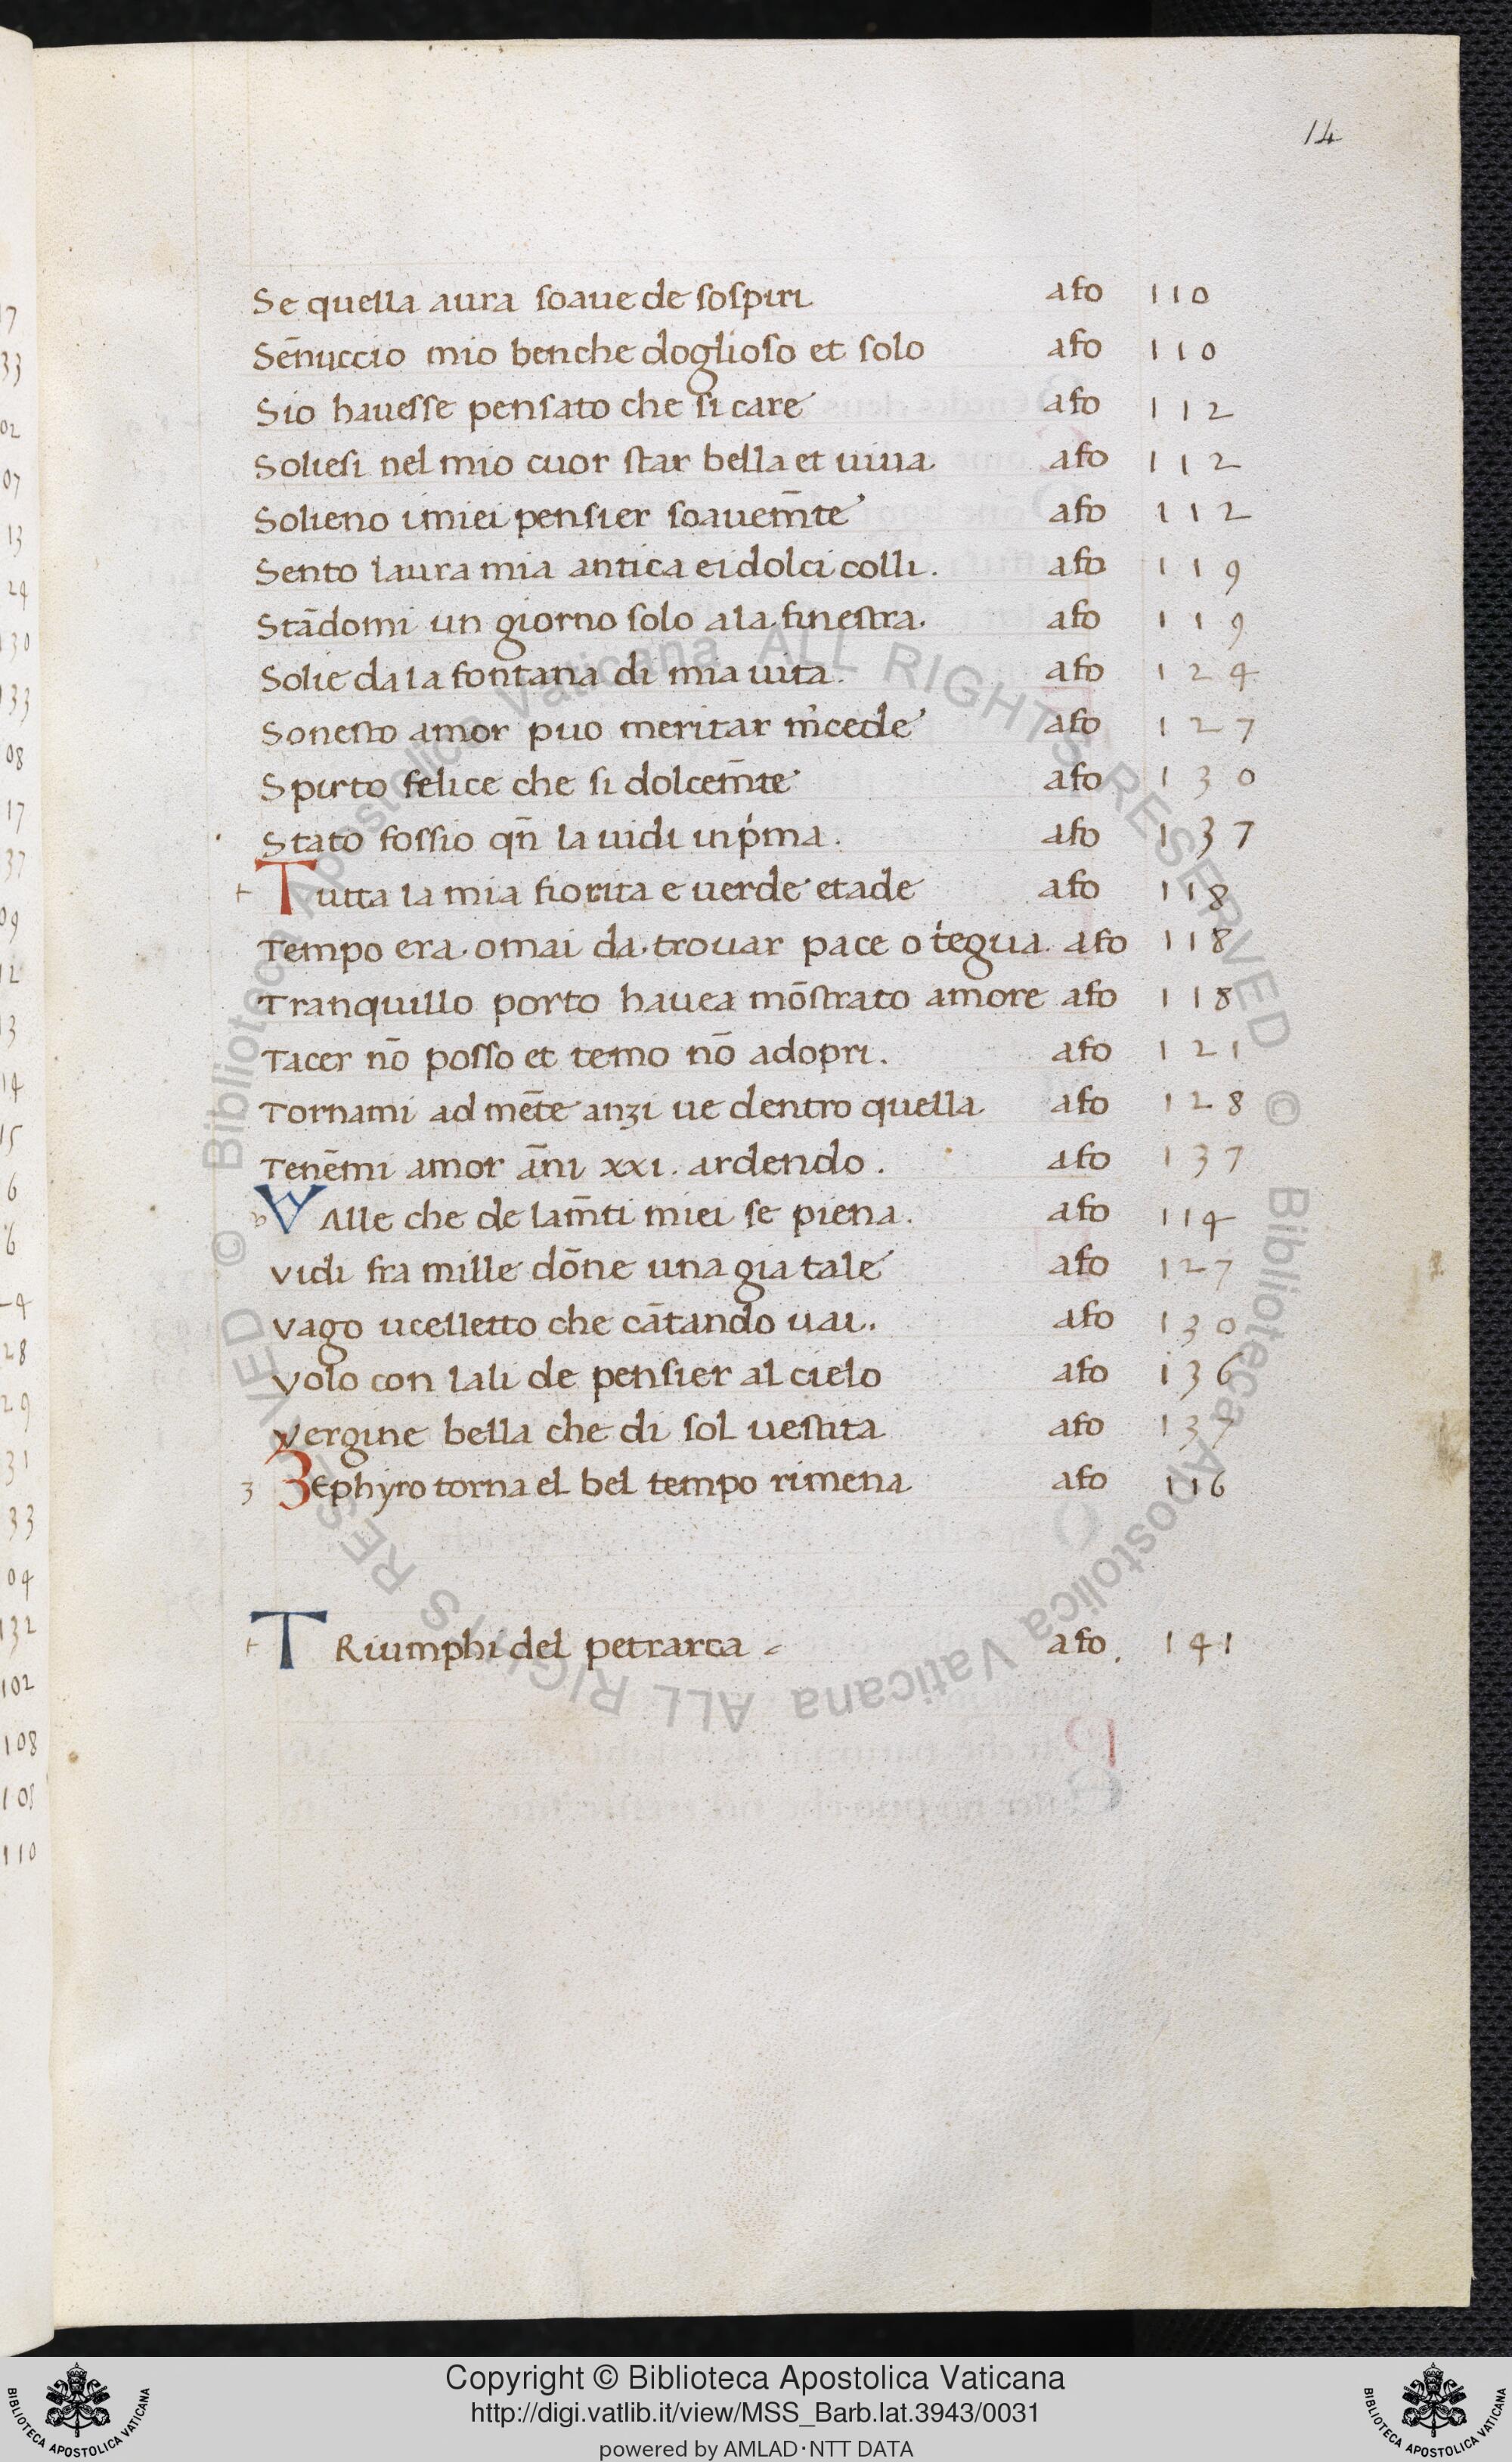 14
Se quella aura soaue de sospiri afo 110
Sen̄uccio mio benche doglioso et solo afo 110
Sio hauesse pensato che si care afo 112
Soliesi nel mio cuor star bella et uiua afo 112
Solieno i miei pensier soauem̄te afo 112
Sento laura mia antica ei dolci colli. afo 119
Stādomi un giorno solo ala finestra. afo 119
Solie da la fontana di mia uita. afo 124
Sonesto amor puo meritar m̓cede afo 127
Spirto felice che si dolcem̄te afo 130
Stato fossio qn̄ la uidi inp̓ma. afo 137
t Tutta la mia fiorita e uerde etade afo 118
Tempo era omai da trouar pace o t̓egua afo 118
Tranquillo porto hauea mōstrato amore afo 118
Tacer nō posso et temo nō adopri. afo 121
Tornami ad mēte anzi ue dentro quella afo 128
Tenēmi amor ān̄i xxi. ardendo. afo 137
v VAlle che de lam̄ti miei se piena. afo 114
Vidi fra mille dōne una gia tale afo 127
Vago ucelletto che cātando uai. afo 130
Volo con lali de pensier al cielo afo 136
Vergine bella che di sol uestita afo 137
z ZEphyro torna el bel tempo rimena afo 116
t TRiumphi del petrarca afo. 141
Copyright © Biblioteca Apostolica Vaticana
http://digi.vatlib.it/view/MSS_Barb.lat.3943/0031
powered by AMLAD·NTT DATA
BIBLIOTECA APOSTOLICA VATICANA
BIBLIOTECA APOSTOLICA VATICANA
© Biblioteca Apostolica Vaticana ALL RIGHTS RESERVED © Biblioteca Apostolica Vaticana ALL RIGHTS RESERVED